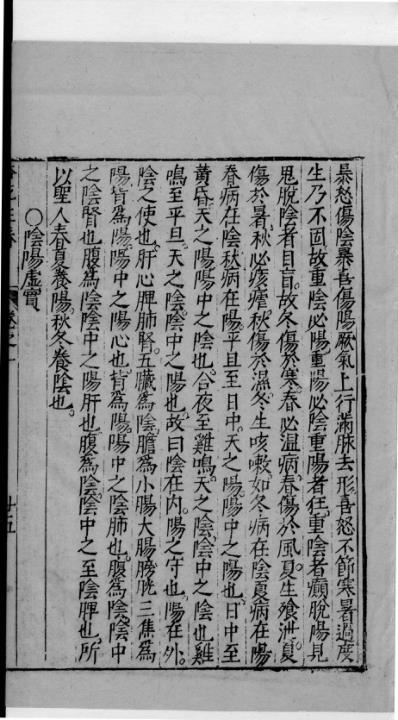 暴怒傷陰暴喜傷陽厥氣上行滿脉去形喜怒不節寒暑過度
生乃不固故重陰必陽重陽必陰重陽者狂重陰者癲脫陽見
鬼脫陰者目盲故冬傷於寒春必温病春傷於風夏生飧泄夏
傷於暑秋必痎瘧秋傷於濕冬生咳嗽如冬病在陰夏病在陽
春病在陰秋病在陽平旦至日中天之陽陽中之陽也日中至
黃昏天之陽陽中之陰也合夜至雞鳴天之陰陰中之陰也雞
鳴至平旦天之陰陰中之陽也故曰陰在內陽之守也陽在外
陰之使也肝心脾肺腎五臟為陰膽為小腸大腸膀胱三焦為
陽背為陽陽中之陽心也背為陽陽中之陰肺也腹為陰陰中
之陰腎也腹為陰陰中之陽肝也腹為陰陰中之至陰脾也所
以聖人春夏養陽秋冬養陰也
〇陰陽虛實
卷之一
十五